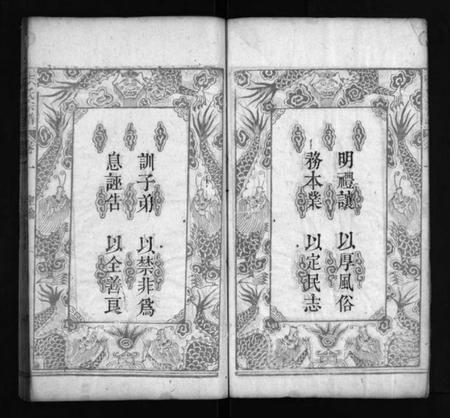 明禮讓　以厚風俗
務本業　以定民志
訓子弟　以禁非為
息誣告　以全善良